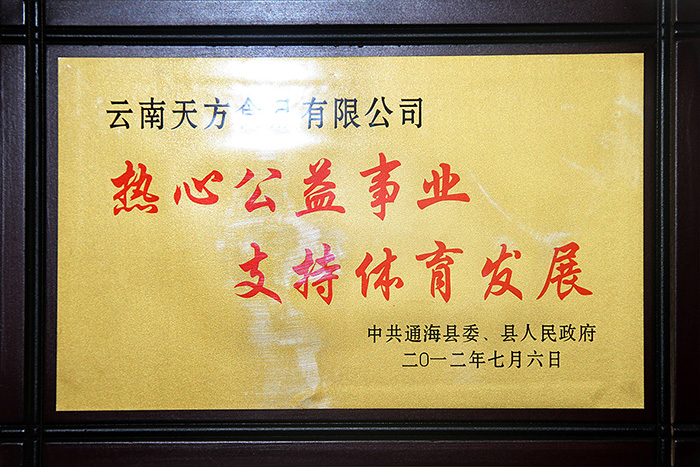 云南天方食品有限公司
热心公益事业
支持体育发展
中共通海县委、县人民政府
二〇一二年七月六日